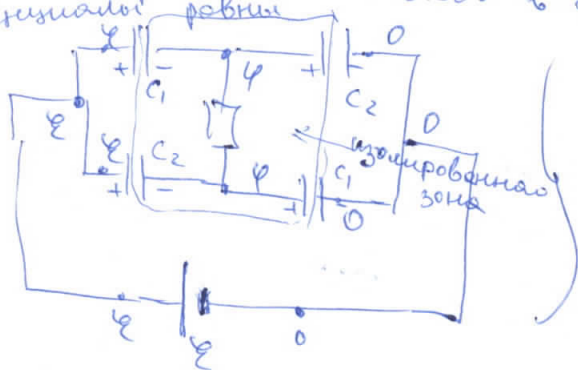 нциалы равны
ℰ 0
+ - φ + -
C₁ φ C₂
ℰ ℰ 0
C₂ C₁ изолированная
+ - φ + 0 зона
ℰ ℰ 0